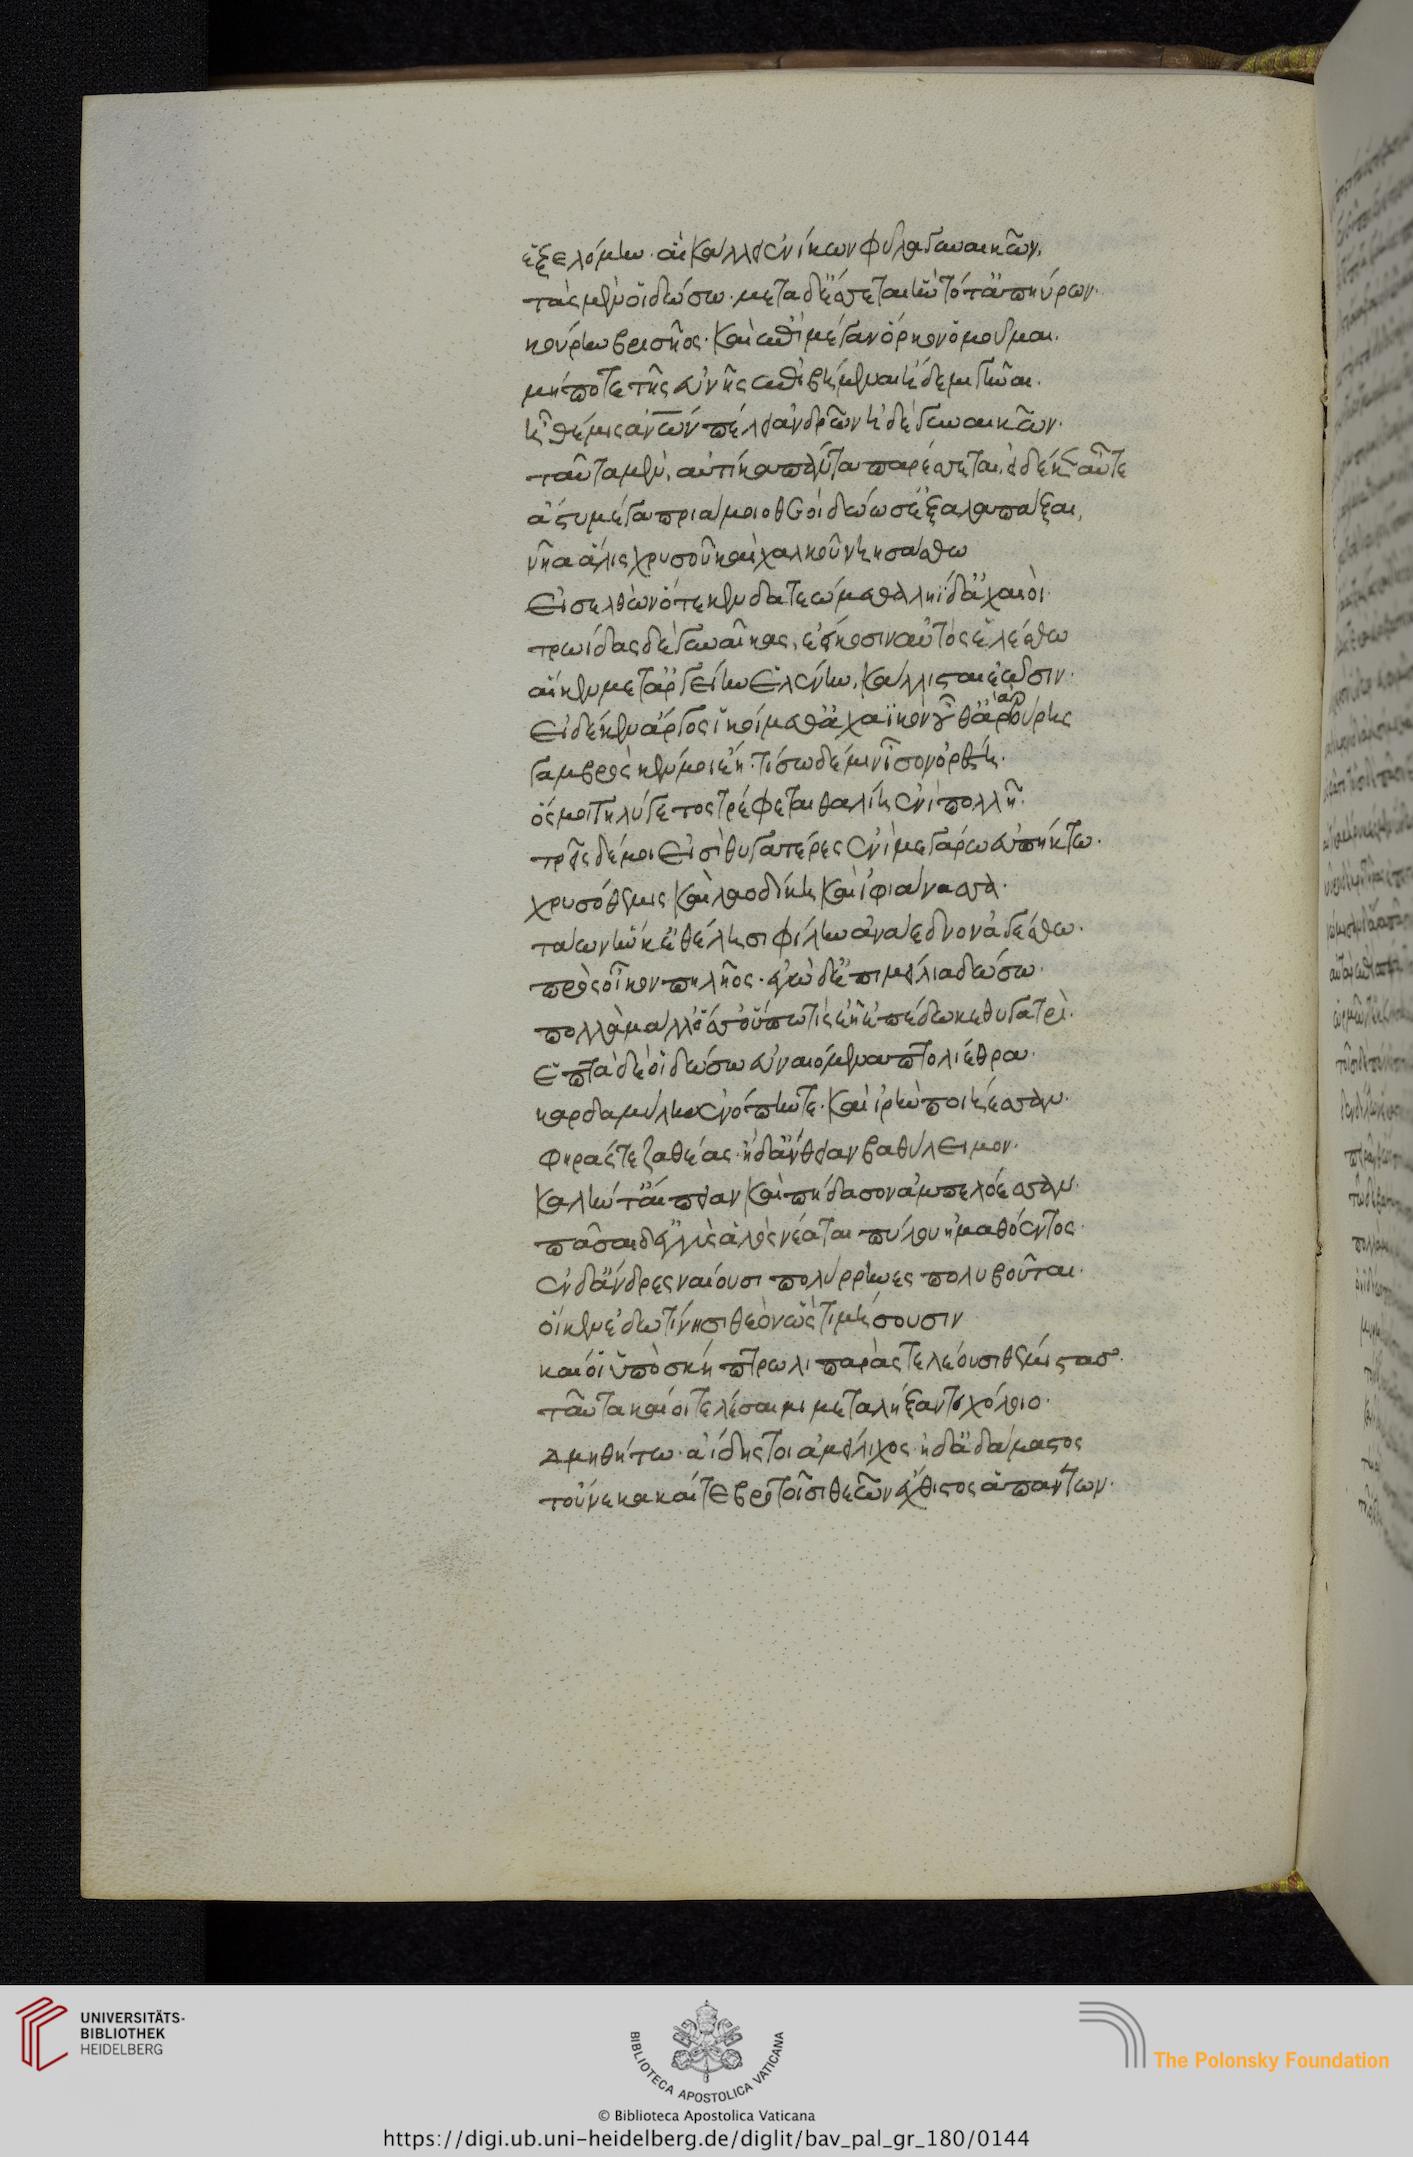 ἐξελόμην· αἳ κάλλει ἐνίκων φῦλα γυναικῶν.
τὰς μὲν οἱ δώσω· μετὰ δ' ἔσσεται ἣν τότ' ἀπηύρων·
κούρην βρισῆος· καὶ ἐπὶ μέγαν ὅρκον ὀμοῦμαι.
μήποτε τῆς εὐνῆς ἐπιβήμεναι ἠδὲ μιγῆναι.
ἣ θέμις ἀνων πέλει ἀνδρῶν ἠδὲ γυναικῶν·
ταῦτα μὲν, αὐτίκα πάντα παρέσσεται, εἰ δέ κεν αὖτε
ἄστυ μέγα πριάμοιο θεοὶ δώωσ' ἐξαλαπάξαι,
νῆα ἅλις χρυσοῦ καὶ χαλκοῦ νηησάσθω
εἰσελθὼν ὅτε κεν δατεώμεθα ληΐδ' ἀχαιοὶ·
τρωίδας δὲ γυναῖκας, ἐείκοσιν αὐτὸς ἑλέσθω
αἵ κεν μετ' ἀργείην ἑλένην, κάλλισται ἔωσιν·
εἰ δέ κεν ἄργος ἱκοίμεθ' ἀχαϊκὸν οὖθαρ ἀρούρης
γαμβρὸς κέν μοι ἔη· τίσω δέ μιν ἶσον ὀρέστη·
ὅς μοι τηλύγετος τρέφεται θαλίη ἐνὶ πολλῆ·
τρεῖς δέ μοι εἰσὶ θυγατέρες ἐνὶ μεγάρω εὐπήκτω·
χρυσόθεμις καὶ λαοδίκη καὶ ἰφιάνασσα·
τάων ἥν κ' ἐθέλησι φίλην ἀνάεδνον ἀγέσθω·
πρὸς οἶκον πηλῆος· ἐγὼ δ' ἐπιμείλια δώσω·
πολλὰ μάλλ' ὅσσ' οὔπω τὶς ἑῆ ἐπέδωκε θυγατρὶ·
ἑπτὰ δὲ οἱ δώσω εὐναιόμενα πτολίεθρα·
καρδαμύλην ἐνόπην τε· καὶ ἱρὴν ποιήεσσαν·
φηράς τε ζαθέας· ἠδ' ἄνθειαν βαθύλειμον·
καλήν τ' αἴπειαν καὶ πήδασον ἀμπελόεσσαν·
πᾶσαι δ' ἐγγὺς ἁλὸς νέαται πύλου ἠμαθόεντος·
ἐν δ' ἄνδρες ναίουσι πολύρρηνες πολυβοῦται·
οἵ κεν ἑ δωτίνησι θεὸν ὣς τιμήσουσιν
καί οἱ ὑπὸ σκήπτρω λιπαρὰς τελέουσι θέμιστας·
ταῦτα καί οἱ τελέσαιμι μεταλήξαντι χόλοιο·
Δμηθήτω· ἀίδης τοι ἀμείλιχος ἠδ' ἀδάμαστος
τοὔνεκα καί τε βροτοῖσι θεῶν ἔχθιστος ἁπάντων·
UNIVERSITÄTS-
BIBLIOTHEK
HEIDELBERG
BIBLIOTECA APOSTOLICA VATICANA
The Polonsky Foundation
© Biblioteca Apostolica Vaticana
https://digi.ub.uni-heidelberg.de/diglit/bav_pal_gr_180/0144